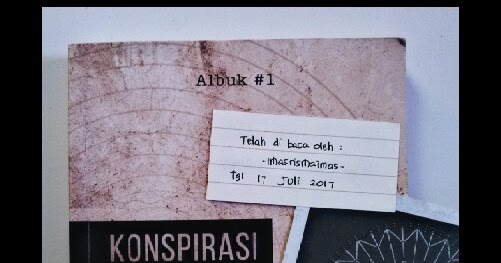 Albuk #1
Telah di baca oleh :
-imasrismaimas-
Tgl 17 Juli 2017
KONSPIRASI